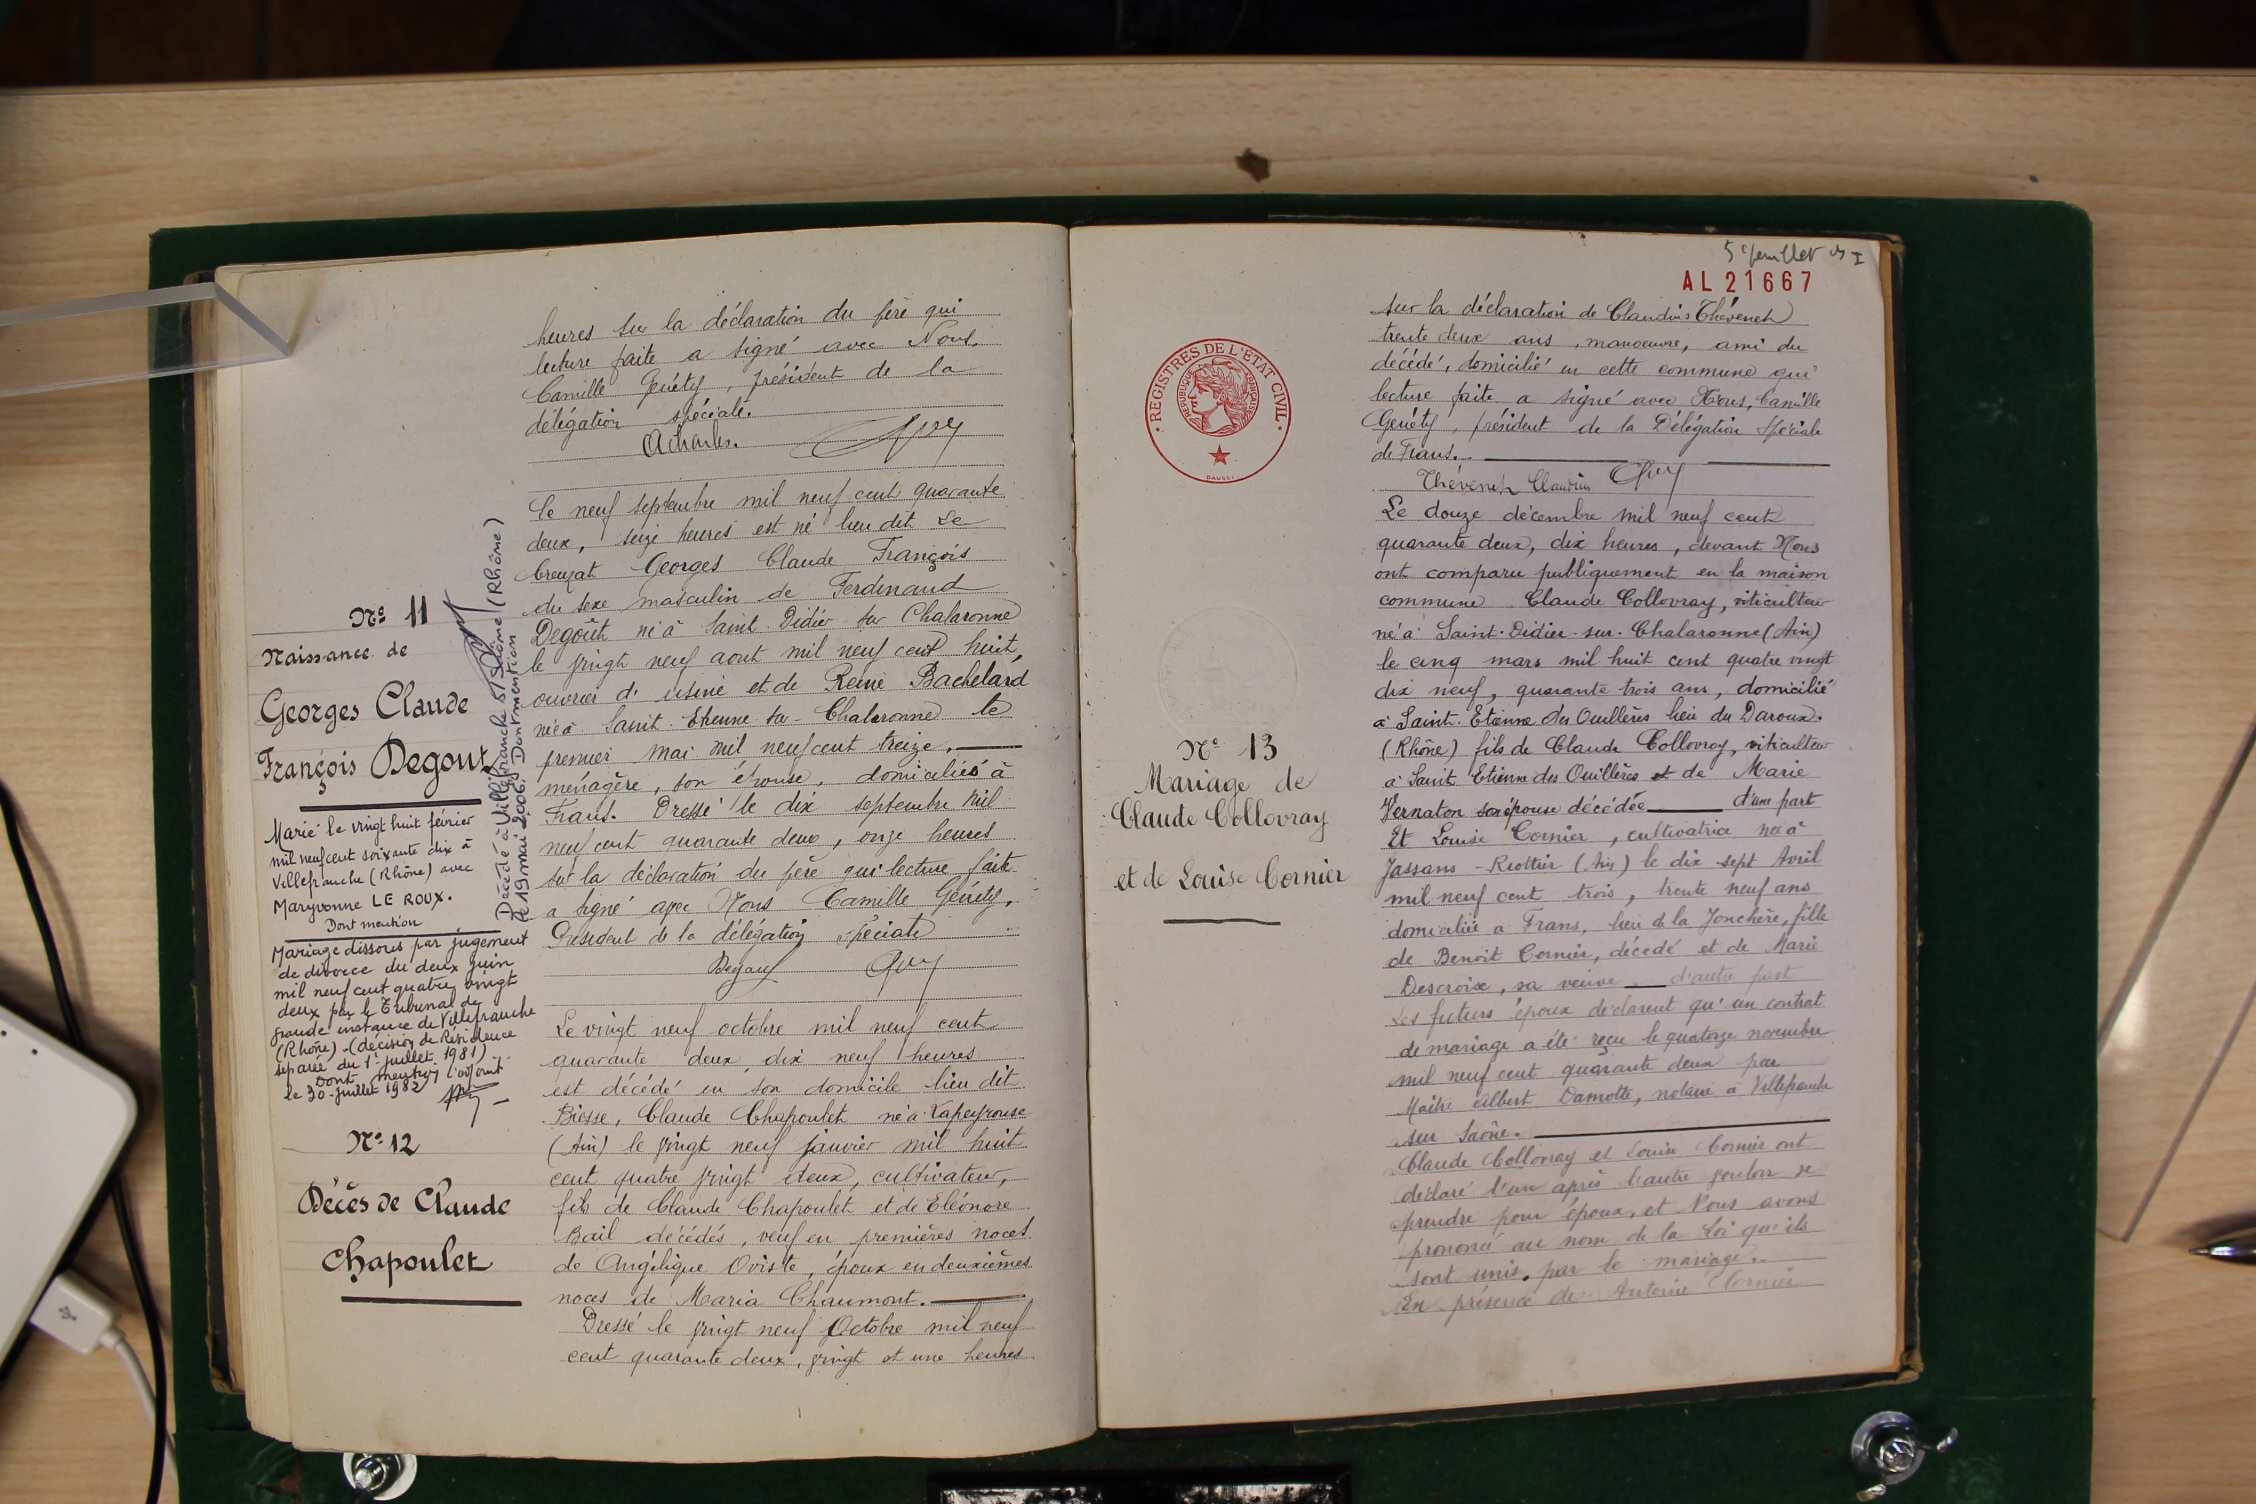 heures sur la déclaration du père qui
lecture faite a signé avec Nous,
Camille Geuéty, président de la
délégation spéciale.
ACharles.
Le neuf septembre mil neuf cent quarante
deux, seize heures est né lieu dit Le
Creuzat Georges Claude François
du sexe masculin de Ferdinand
Degoût né à Saint Didier sur Chalaronne
le vingt neuf aout mil neuf cent huit,
ouvrier d'usine et de Reine Bachelard
née à Saint Etienne sur Chalaronne le
premier mai mil neuf cent treize,
ménagère, son épouse, domiciliés à
Frans. Dressé le dix septembre mil
neuf cent quarante deux, onze heures
sur la déclaration du père qui lecture faite
a signé avec Nous Camille Geuéty,
Président de la délégation spéciale
Degout
Le vingt neuf octobre mil neuf cent
quarante deux, dix neuf heures
est décédé en son domicile lieu dit
Biesse, Claude Chapoulet né à Lapeyrouse
(Ain) le vingt neuf janvier mil huit
cent quatre vingt deux, cultivateur,
fils de Claude Chapoulet et de Eléonore
Bail décédés, veuf en premières noces
de Angélique Oviste, époux en deuxièmes
noces de Maria Chaumont.
Dressé le vingt neuf Octobre mil neuf
cent quarante deux, vingt et une heures
N° 11
Naissance de
Georges Claude
François Degout
Marié le vingt huit février
mil neuf cent soixante dix à
Villefranche (Rhône) avec
Maryvonne LE ROUX.
Dont mention
Mariage dissous par jugement
de divorce du deux juin
mil neuf cent quatre vingt
deux par le Tribunal de
grande instance de Villefranche
(Rhône) - (décision de Résidence
séparée du 1er juillet 1981)
Dont mention l'adjoint
le 30 juillet 1982
Décédé à Villefranche s/ Saône (Rhône)
le 19 mai 2006. Dont mention
N° 12
Décès de Claude
Chapoulet
5e feuillet
AL 21667
REGISTRES DE L'ETAT CIVIL
REPUBLIQUE FRANÇAISE
DAUSSY
sur la déclaration de Claudius Thévenet
trente deux ans, manoeuvre, ami du
décédé, domicilié en cette commune qui
lecture faite a signé avec Nous, Camille
Geuéty, président de la Délégation Spéciale
de Frans.
Thévenet Claudius
Le douze décembre mil neuf cent
quarante deux, dix heures, devant Nous
ont comparu publiquement en la maison
commune Claude Collovray, viticulteur
né à Saint-Didier-sur-Chalaronne (Ain)
le cinq mars mil huit cent quatre vingt
dix neuf, quarante trois ans, domicilié
à Saint-Etienne des Ouillères lieu du Daroux.
(Rhône) fils de Claude Collovray, viticulteur
à Saint Etienne des Ouillères et de Marie
Vernaton son épouse décédée d'une part
Et Louise Cornier, cultivatrice née à
Jassans-Riottier (Ain) le dix sept Avril
mil neuf cent trois, trente neuf ans
domiciliée à Frans, lieu de la Jonchère, fille
de Benoit Cornier, décédé et de Marie
Descroix, sa veuve d'autre part
Les futurs époux déclarent qu'un contrat
de mariage a été reçu le quatorze novembre
mil neuf cent quarante deux par
Maitre Albert Damotte, notaire à Villefranche
sur Saône.
Claude Collovray et Louise Cornier ont
déclaré l'un après l'autre vouloir se
prendre pour époux, et Nous avons
prononcé au nom de la Loi qu'ils
sont unis par le mariage.
En présence de Antoine Cornier
N° 13
Mariage de
Claude Collovray
et de Louise Cornier